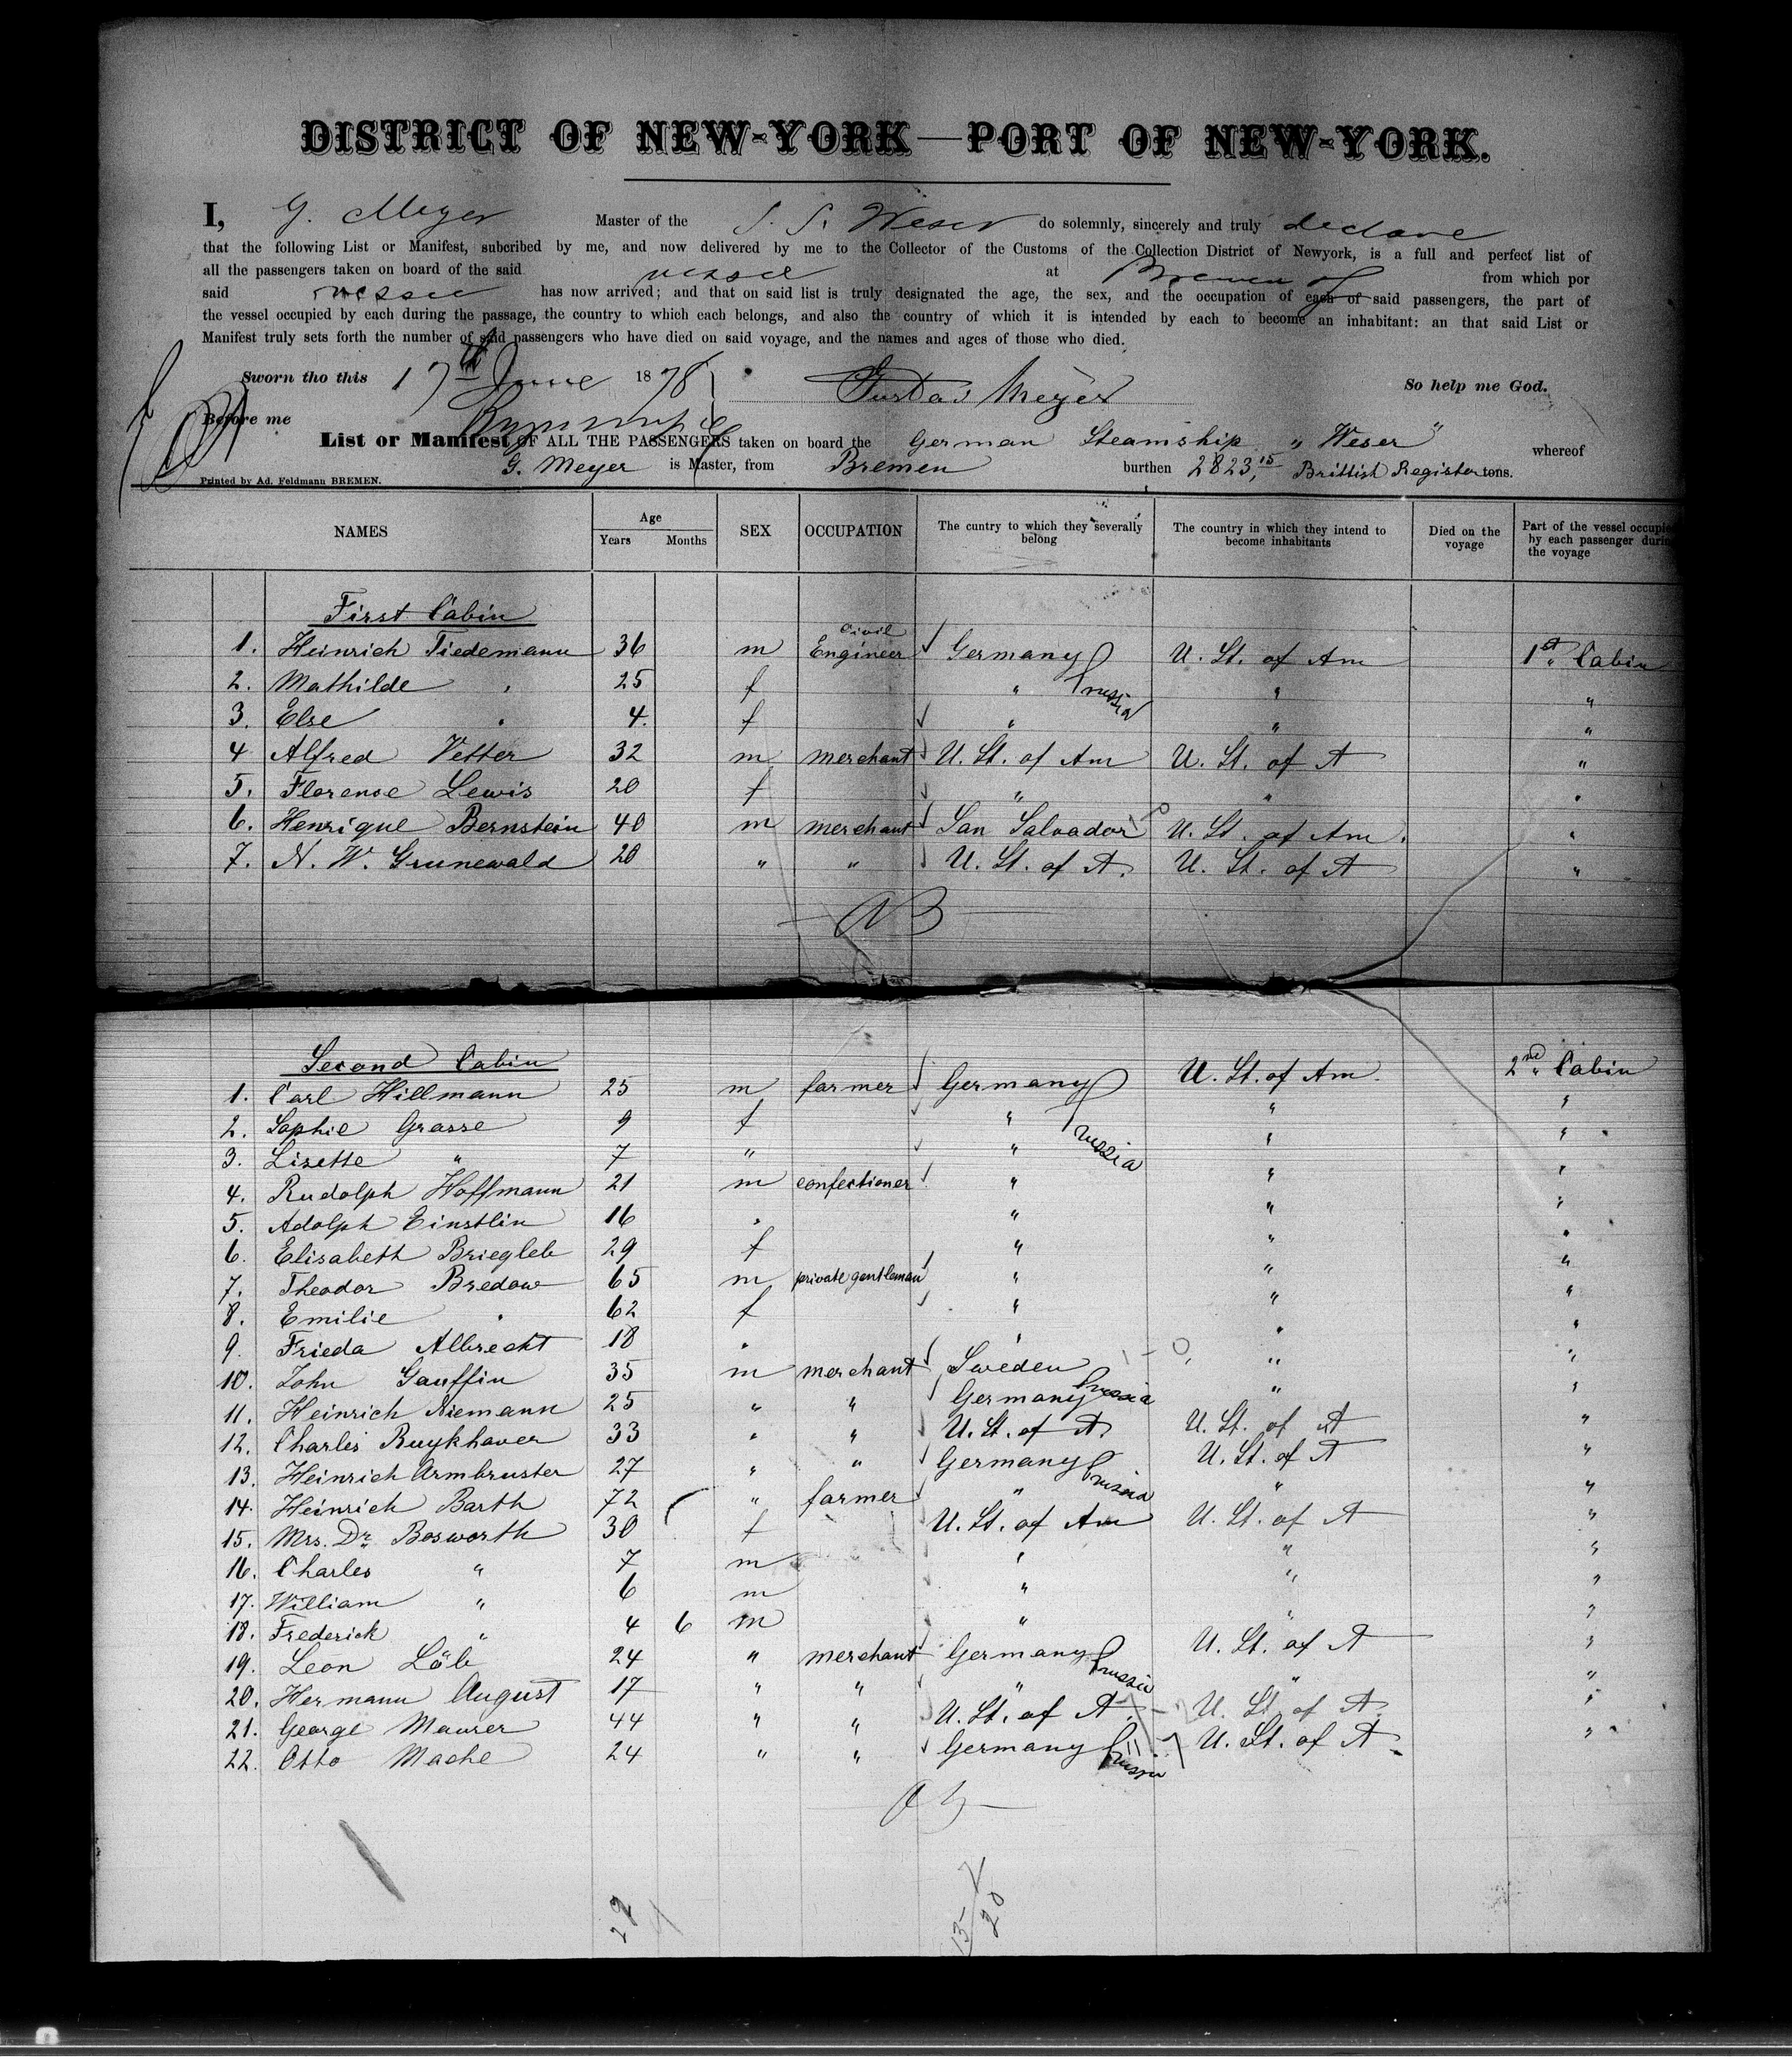 DISTRICT OF NEW-YORK—PORT OF NEW-YORK.
I, G. Meyer Master of the S. S. Weser do solemnly, sincerely and truly declare
that the following List or Manifest, subcribed by me, and now delivered by me to the Collector of the Customs of the Collection District of Newyork, is a full and perfect list of
all the passengers taken on board of the said vessel at Bremen from which por
said vessel has now arrived; and that on said list is truly designated the age, the sex, and the occupation of each of said passengers, the part of
the vessel occupied by each during the passage, the country to which each belongs, and also the country of which it is intended by each to become an inhabitant: an that said List or
Manifest truly sets forth the number of said passengers who have died on said voyage, and the names and ages of those who died.
Sworn tho this 17th June 1878 Gustav Meyer So help me God.
Before me
List or Manifest OF ALL THE PASSENGERS taken on board the German Steamship "Weser" whereof
G. Meyer is Master, from Bremen burthen 2823,15 Brittish Register tons.
Printed by Ad. Feldmann BREMEN.
NAMES Age Years Months SEX OCCUPATION The cuntry to which they severally belong The country in which they intend to become inhabitants Died on the voyage Part of the vessel occupied by each passenger during the voyage
First Cabin
1. Heinrich Tiedemann 36 m Civil Engineer Germany U. St. of Am 1st Cabin
2. Mathilde " 25 f " Prussia " "
3. Else " 4. f " " "
4 Alfred Vetter 32 m merchant U. St. of Am U. St. of A "
5. Florence Lewis 20 f " " "
6. Henrique Bernstein 40 m merchant San Salvador U. St. of Am. "
7. N. W. Grunewald 20 " " U. St. of A. U. St. of A "
Second Cabin
1. Carl Hillmann 25 m farmer Germany U. St. of Am. 2nd Cabin
2. Sophie Grasse 9 f " Prussia " "
3. Lisette " 7 " " " "
4. Rudolph Hoffmann 21 m confectioner " " "
5. Adolph Einstlin 16 " " " "
6. Elisabeth Briegleb 29 f " " "
7. Theodor Bredow 65 m private gentleman " " "
8. Emilie " 62 f " " "
9. Frieda Albrecht 18 " " " "
10. John Gauffin 35 m merchant Sweden " "
11. Heinrich Niemann 25 " " Germany Prussia " "
12. Charles Ruykhaver 33 " " U. St. of A. U. St. of A "
13. Heinrich Armbruster 27 " " Germany Prussia U. St. of A "
14. Heinrich Barth 72 " farmer " " "
15. Mrs. Dr. Bosworth 30 f U. St. of Am U. St. of A "
16. Charles " 7 m " " "
17. William " 6 m " " "
18. Frederick " 4 6 m " " "
19. Leon Löb 24 " merchant Germany Prussia U. St. of A "
20. Hermann August 17 " " " " "
21. George Maurer 44 " " U. St. of A. U. St. of A. "
22. Otto Mache 24 " " Germany Prussia U. St. of A. "